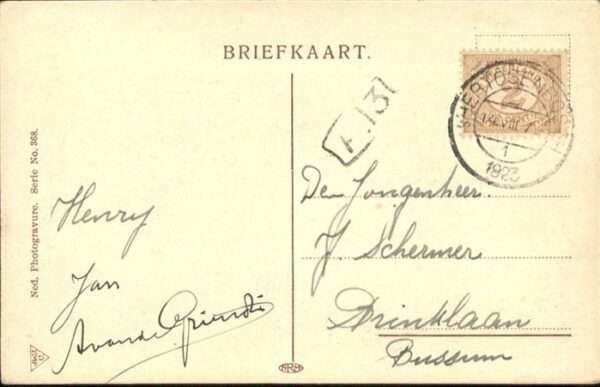 BRIEFKAART.
Ned. Photogravure. Serie No. 368.
Henry
Jan
A. 131
'S HERTOGENBOSCH
1
1923
De Jongenheer
J. Schermer
Brinklaan
Bussum